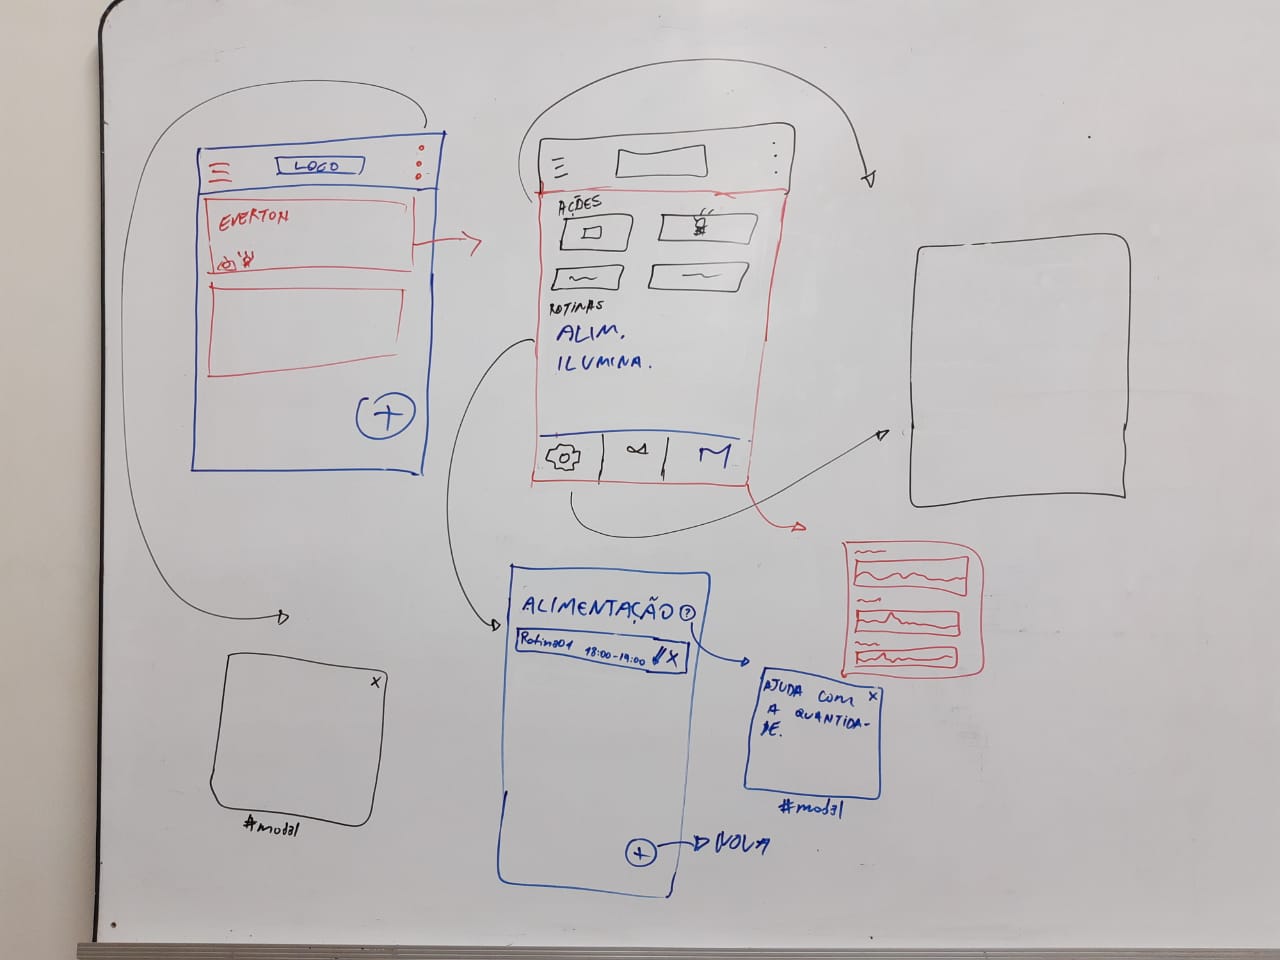 LOGO
EVERTON
+
AÇÕES
ROTINAS
ALIM.
ILUMINA.
ALIMENTAÇÃO ?
Rotina01 18:00-19:00 X
+
NOVA
X
#modal
AJUDA COM X
A QUANTIDA-
DE.
#modal